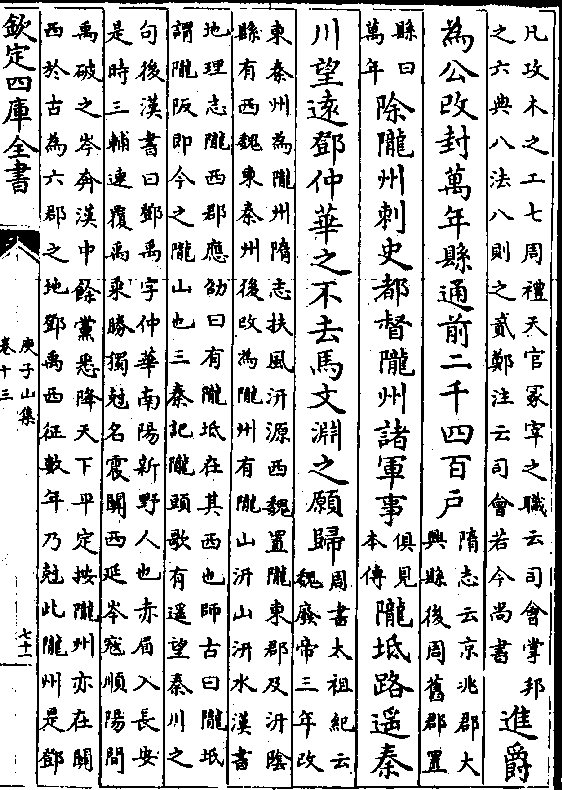 凡攻木之工七周禮天官冢宰之職云司會掌邦
之六典八法八則之貳鄭注云司會若今尚書
進爵
為公改封萬年縣通前二千四百户
隋志云京兆郡大
興縣後周舊郡置
縣曰
萬年
除隴州刺史都督隴州諸軍事
俱見
本傳
隴坻路遥秦
川望遠鄧仲華之不去馬文淵之願歸
周書太祖紀云
魏廢帝三年改
東秦州為隴州隋志扶風汧源西魏置隴東郡及汧陰
縣有西魏東秦州後改為隴州有隴山汧山汧水漢書
地理志隴西郡應劭曰有隴坻在其西也師古曰隴坻
謂隴阪即今之隴山也三秦記隴頭歌有遥望秦川之
句後漢書曰鄧禹字仲華南陽新野人也赤眉入長安
是時三輔連覆禹乘勝獨尅名震關西延岑寇順陽間
禹破之岑奔漢中餘黨悉降天下平定按隴州亦在關
西於古為六郡之地鄧禹西征數年乃尅此隴州是鄧
欽定四庫全書
庾子山集
卷十三
七十一